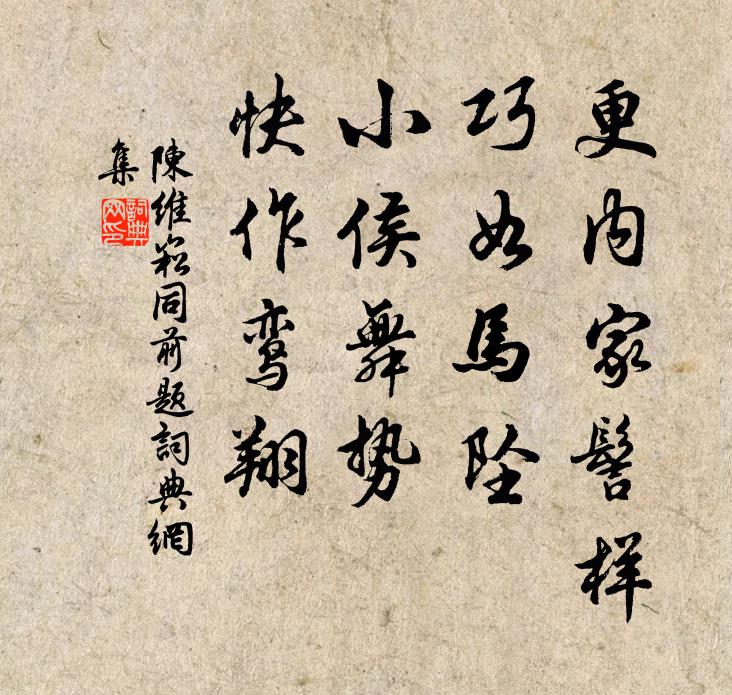 更内家髻样
巧如馬墜
小侯舞势
快作鸾翔
陳維崧同前题詞典網
集
詞典
网印